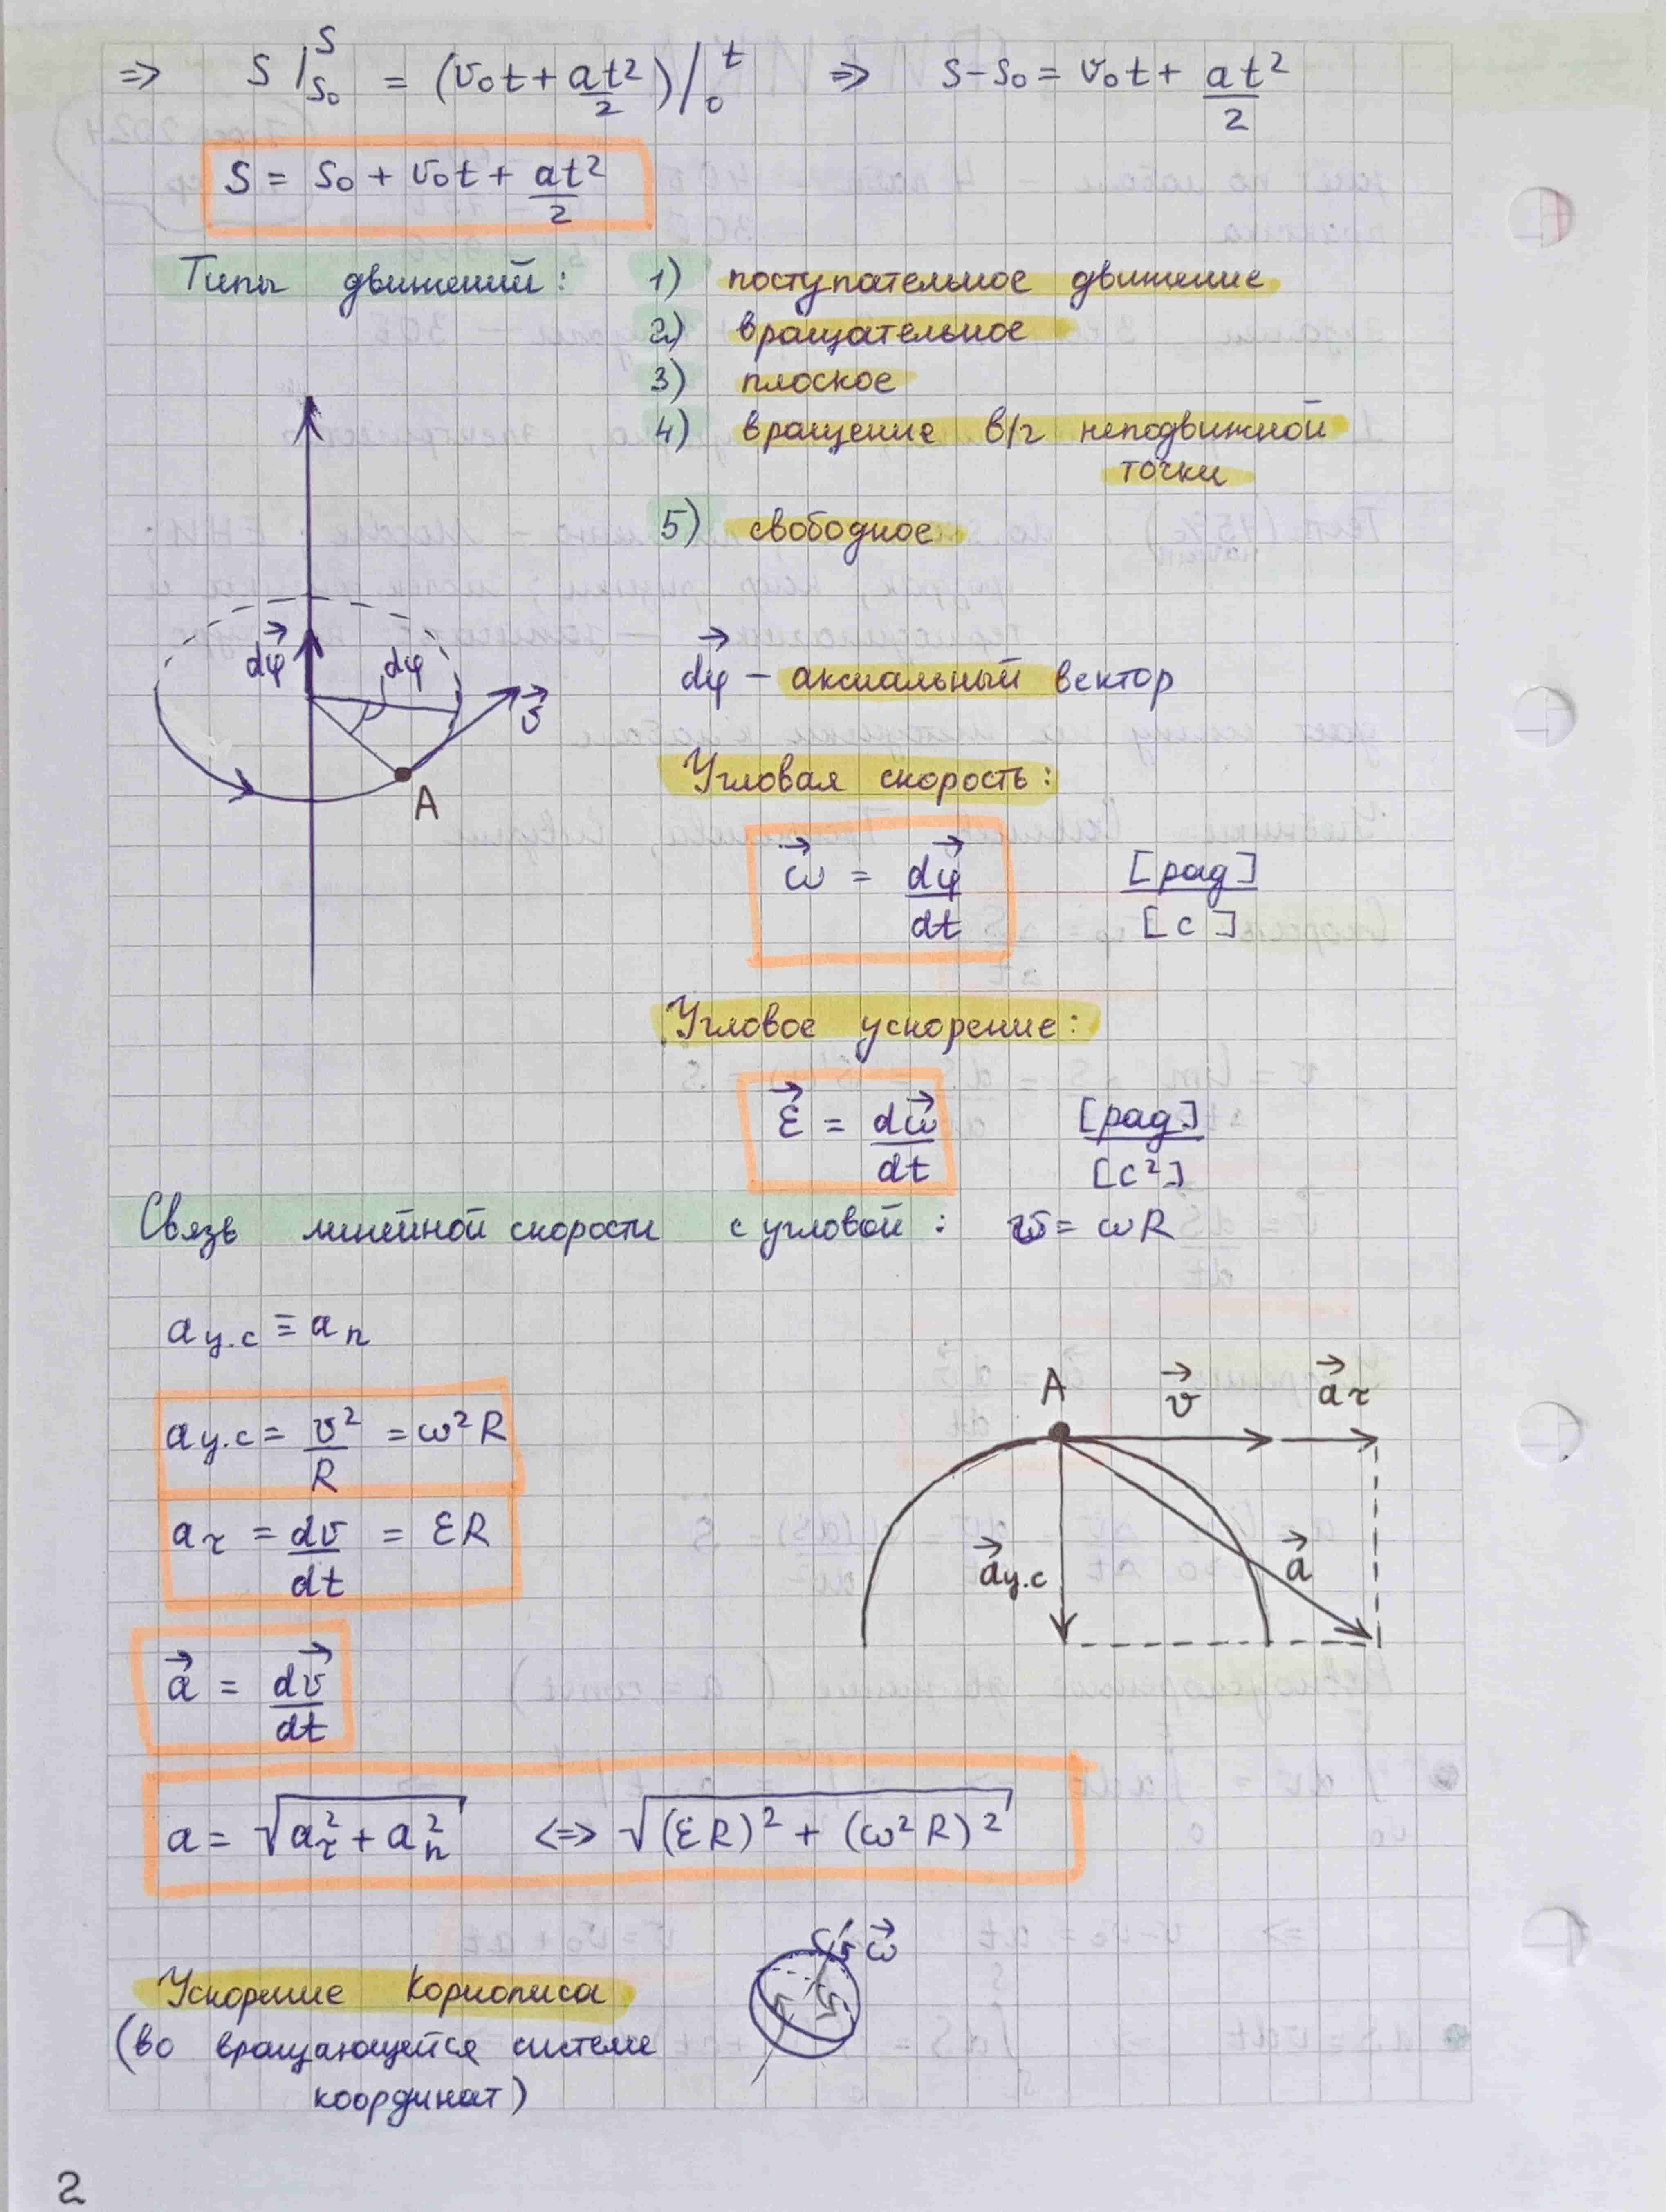 => S |_{S₀}^{S} = (v₀t + at²/2) |_{0}^{t} => S - S₀ = v₀t + at²/2
S = S₀ + v₀t + at²/2
Типы движений: 1) поступательное движение
2) вращательное
3) плоское
4) вращение в/г неподвижной
точки
5) свободное
dφ⃗ dφ v⃗ A
dφ⃗ – аксиальный вектор
Угловая скорость:
ω⃗ = dφ⃗/dt [рад]/[с]
Угловое ускорение:
ε⃗ = dω⃗/dt [рад]/[с²]
Связь линейной скорости с угловой: v = ωR
aц.с ≡ aₙ
aц.с = v²/R = ω²R
a_τ = dv/dt = εR
A v⃗ a⃗_τ
a⃗ц.с a⃗
a⃗ = dv⃗/dt
a = √(a_τ² + aₙ²) <=> √((εR)² + (ω²R)²)
ω⃗
Ускорение Кориолиса
(во вращающейся системе
координат)
2